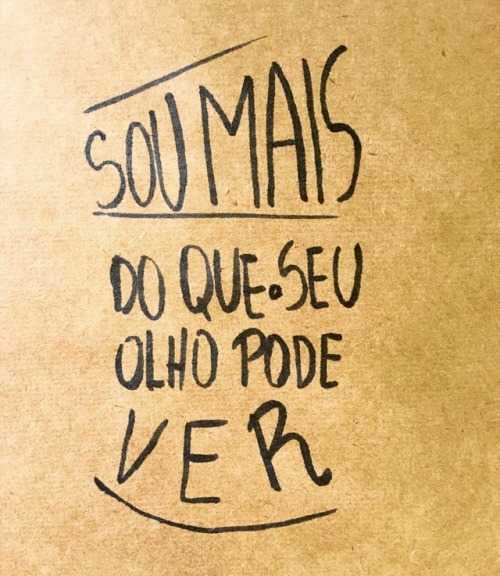 SOU MAIS
DO QUE.SEU
OLHO PODE
VER